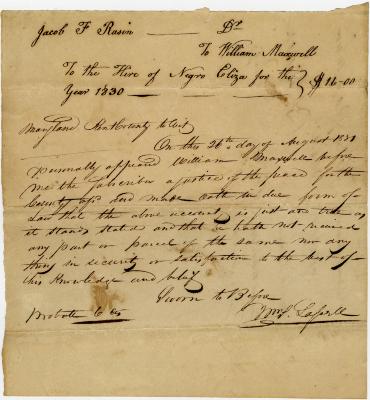 Jacob F Rasin Dr
To William Maxwell
To the Hire of Negro Eliza for the } $16-00
Year 1830
Maryland Kent County to wit
On this 26th day of August 1831
Personally appeard William Maxwell before
me the subscriber a justice of the peace for the
County afsd and made oath in due form of
Law that the above account is just and true as
it stands stated and that he hath not received
any part or parcel of the same nor any
thing in security or satisfaction to the best of
his Knowledge and belief
Sworn to Before
Probate 6 cts
Wm S. Lassell